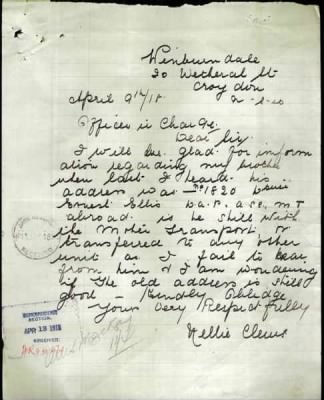 Winburndale
20 Wetheral St
Croydon
April 9th/18
Officer in Charge.
Dear Sir
I will be glad for inform
ation regarding my brothe
when last I heard his
address was No 1820
Ernest Ellis A.S.C. M T
abroad. is he still with
the Motor Transport or
transferred to any other
unit as I fail to hear
from him & I am wondering
if the old address is still
good - Kindly Oblidge
Yours Very Respectfully
Nellie Clews
SECTION.
APR 13 1918
RECEIVED